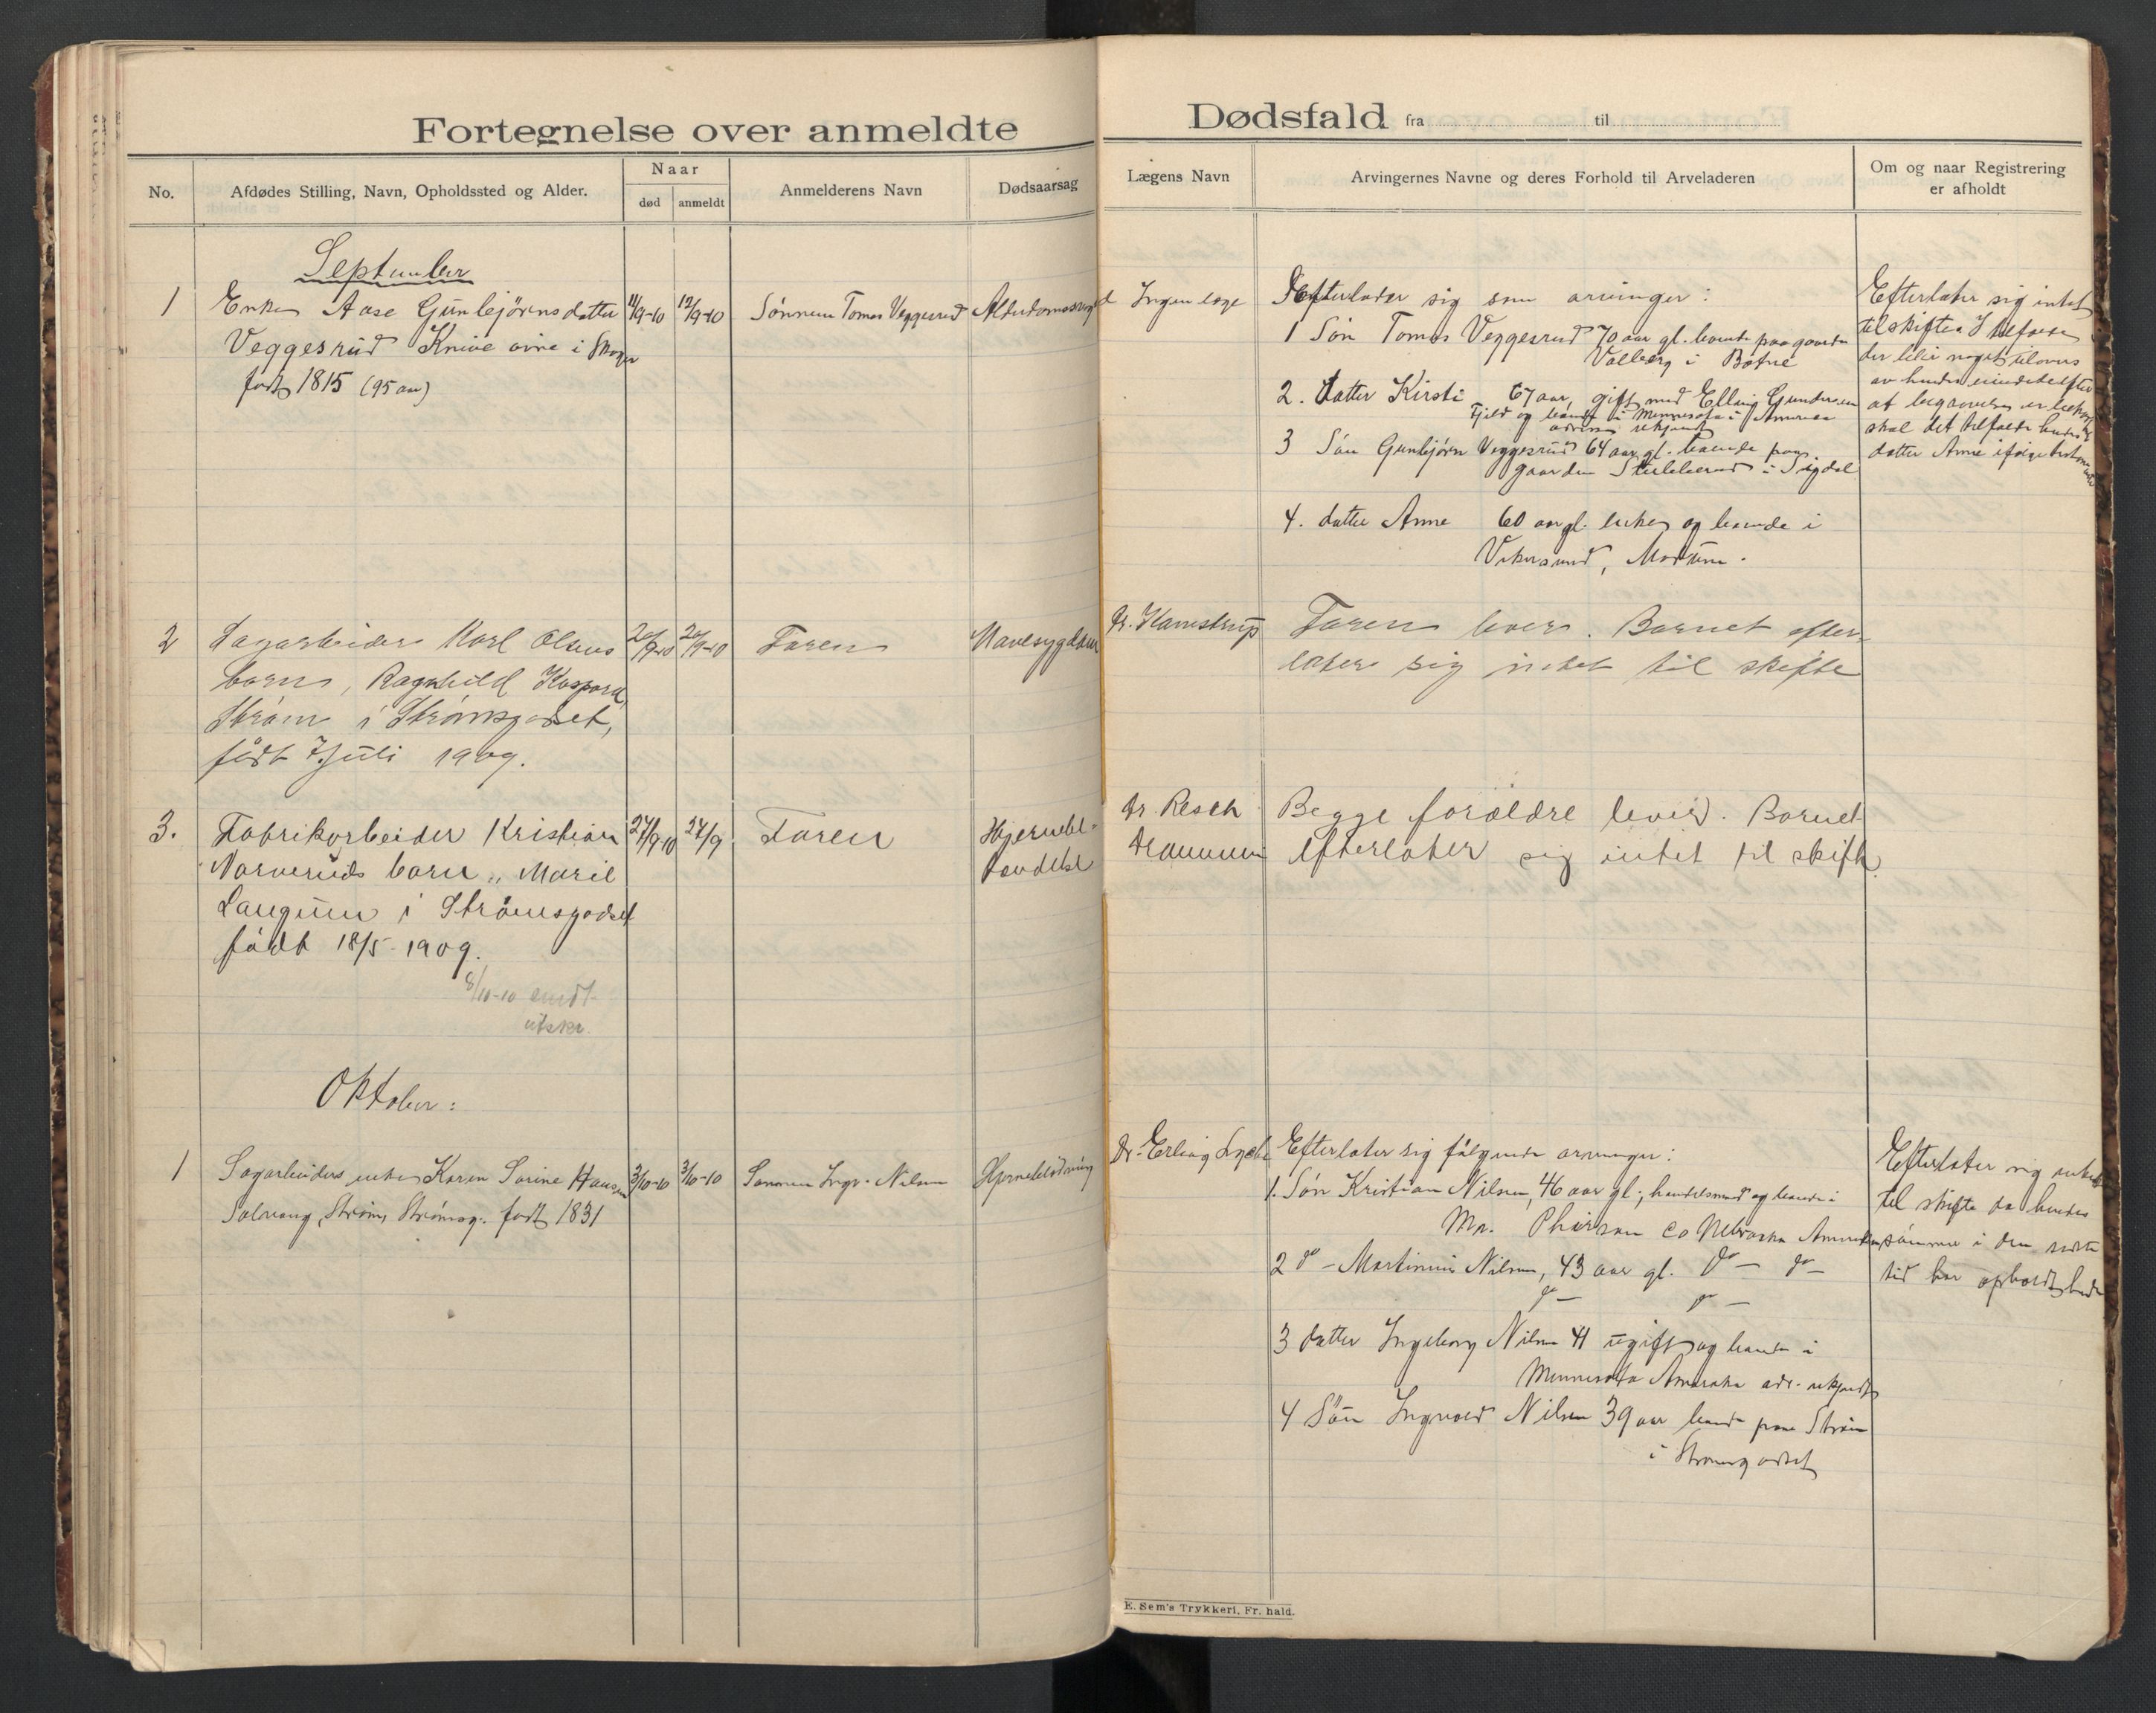 Fortegnelse over anmeldte
No.
Afdødes Stilling, Navn, Opholdssted og Alder.
Naar
død
anmeldt
Anmelderens Navn
Dødsaarsag
September
1
Enke Aase Gunbjörnsdatter
Veggesrud Knive øvre i Skoger
født 1815 (95 aar)
11/9-10
12/9-10
Sønnen Tomas Veggesrud
2
Sagarbeider Karl Olsens
barn, Ragnhild Kaspara
Strøm i Strømsgodset,
født 7 Juli 1909.
20/9-10
20/9-10
Faren
Mavesygdom
3.
Fabrikarbeider Kristian
Narveruds barn, Marie
Langum i Strømsgodset
født 18/5-1909.
8/10-10 sendt
utskr.
27/9-10
27/9
Faren
Hjernebe-
tændelse
Oktober:
1
Sagarbeiders enke Karen Sorine Hansen
Solvang, Strøm, Strømsg. født 1831
3/10-10
3/10-10
Sønnen Ingv. Nilsen
Hjerneblødning
Dødsfald fra til
Lægens Navn
Arvingernes Navne og deres Forhold til Arveladeren
Om og naar Registrering
er afholdt
Ingen læge
Efterlader sig som arvinger:
1 Søn Tomas Veggesrud 70 aar gl. boende paa gaarden
Valberg i Botne
2. datter Kirsti 67 aar, gift med Elling Gundersen
Fjeld og boende i Minnesota i Amerika
adresse ukjendt
3 Søn Gunbjørn Veggesrud 64 aar gl. boende paa
gaarden Stubberud i Sigdal
4. datter Anne 60 aar gl. enke og boende i
Vikersund, Modum.
Efterlater sig intet
til skifte. I tilfælde
der blir noget tilovers
av hendes
at begravelsen er
skal det tilfalde hendes
datter Anne ifølge
Dr. Kamstrup
Faren lever. Barnet efter-
later sig intet til skifte
Dr. Resch
Drammen
Begge forældre lever. Barnet
efterlater sig intet til skifte.
Dr. Erling
Efterlater sig følgende arvinger:
1. Søn Kristian Nilsen, 46 aar gl., handelsmand og boende i
Mr. Phirson Co Nebraska Amerika
2 do - Martinius Nilsen, 43 aar gl. do - do -
do - do -
3 datter Ingeborg Nilsen 41 ugift og boende i
Minnesota Amerika adr. ukjendt
4 Søn Ingvald Nilsen 39 aar boende paa Strøm
i Strømsgodset
Efterlater sig intet
til skifte da hendes
sønner i den sidste
tid har opholdt hende
E. Sem's Trykkeri, Fr. hald.